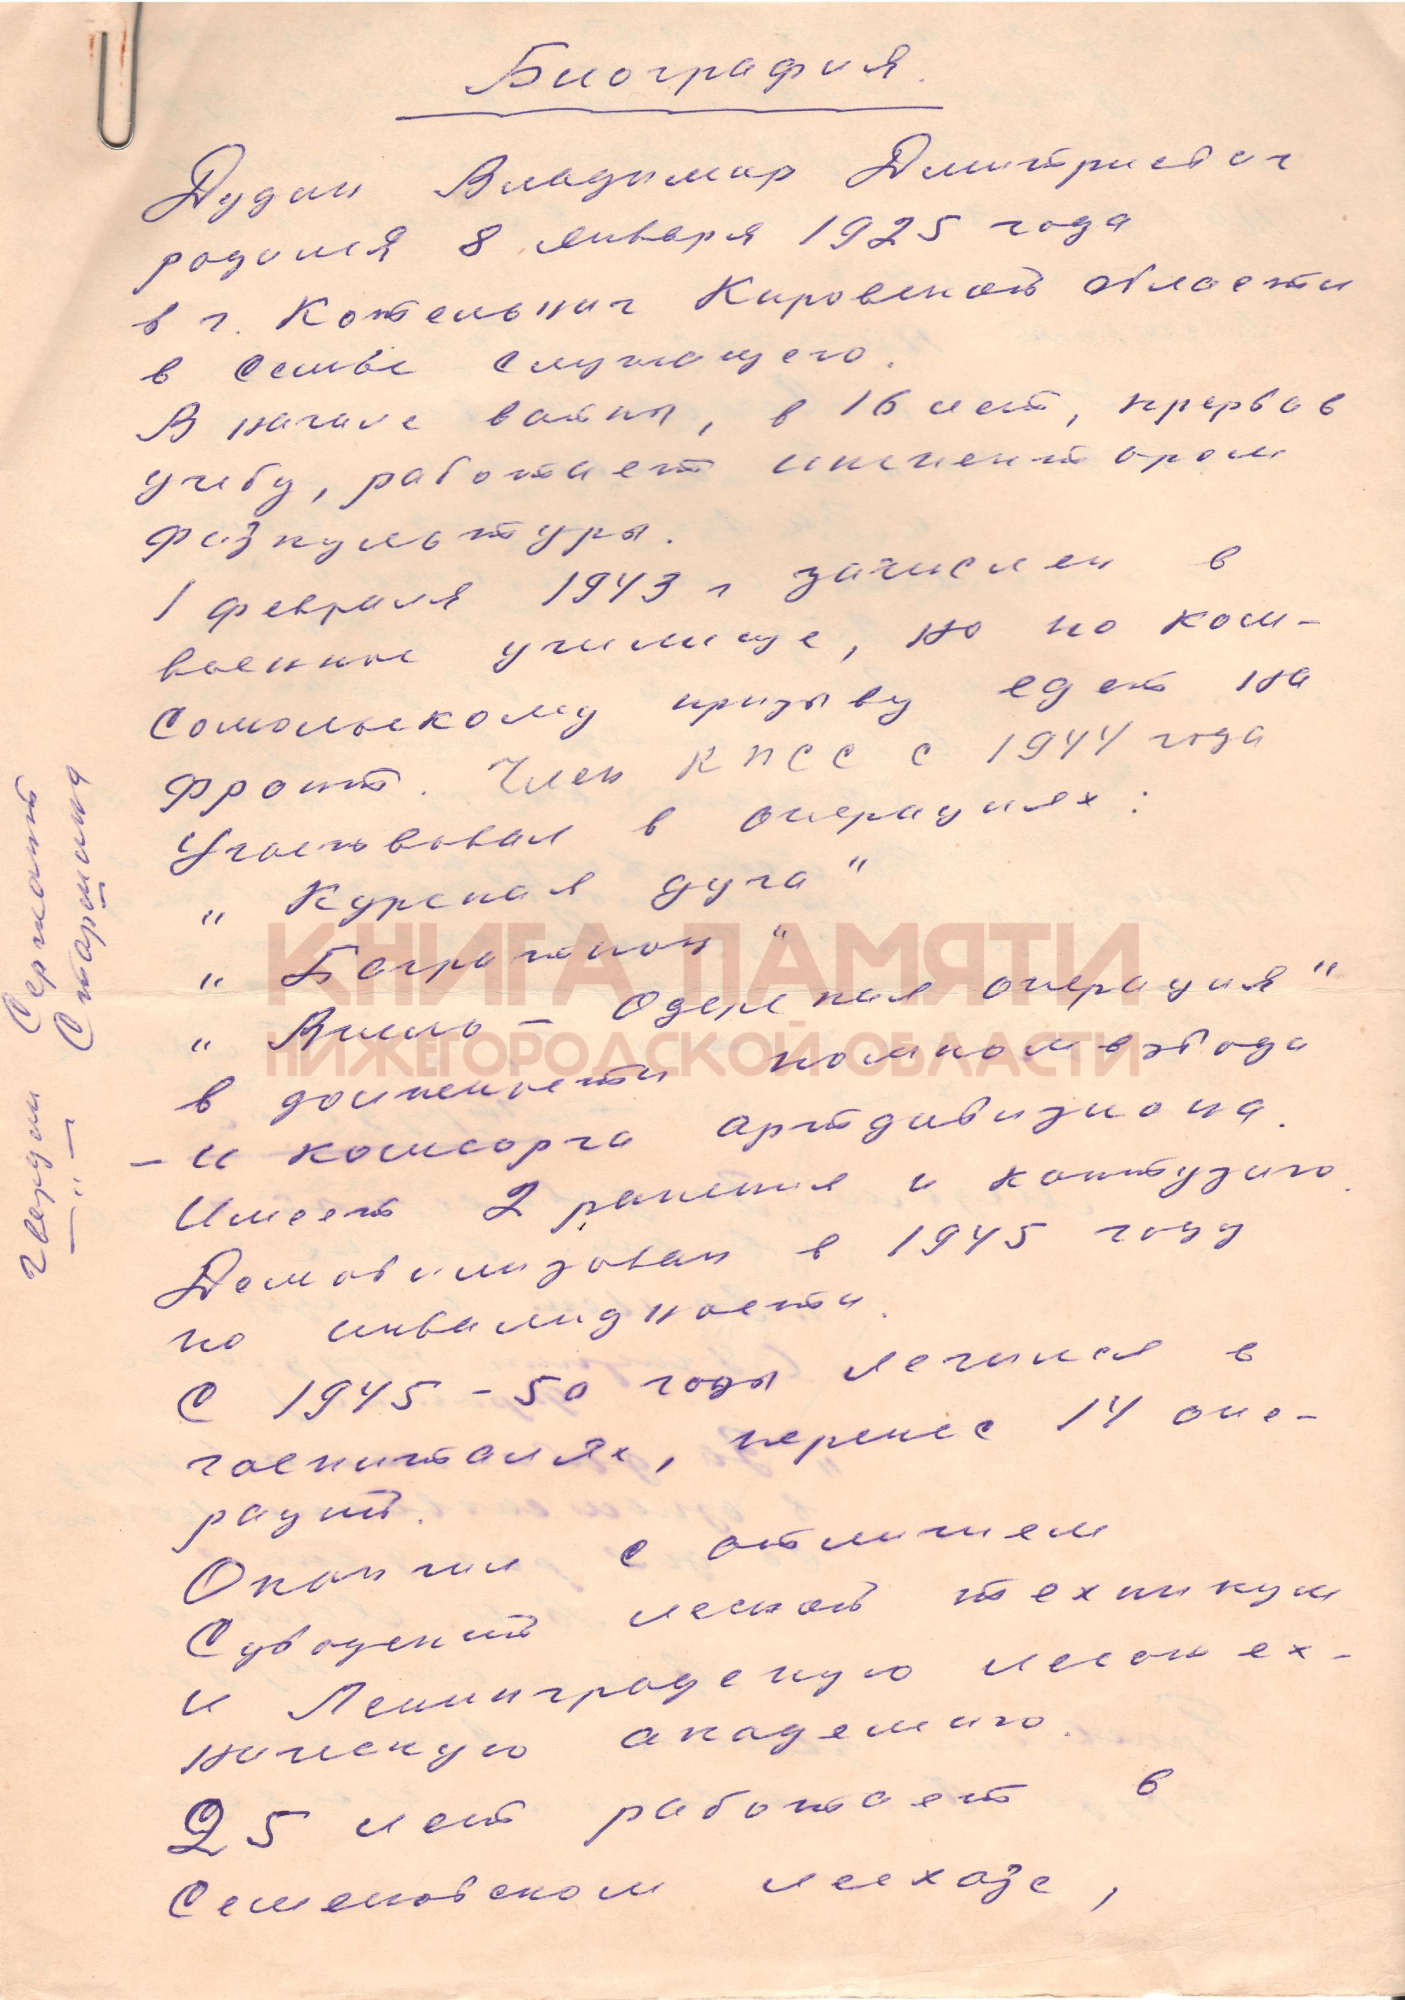 Биография.
Дудин Владимир Дмитриевич
родился 8 января 1925 года
в г. Котельнич Кировской области
в семье служащего.
В начале войны, в 16 лет, прервав
учебу, работает инспектором
физкультуры.
1 февраля 1943 г зачислен в
военное училище, но по ком-
сомольскому призыву едет на
фронт. Член КПСС с 1944 года
Участвовал в операциях:
„Курская дуга"
„Багратион"
„Висло-Одерская операция"
в должности помкомвзвода
- и комсорга артдивизиона.
Имеет 2 ранения и контузию.
Демобилизован в 1945 году
по инвалидности.
С 1945-50 годы лечился в
госпиталях, перенес 14 опе-
раций.
Окончил с отличием
Суводский лесной техникум
и Ленинградскую лесотех-
ническую академию.
25 лет работает в
Семеновском лесхозе,
Гвардии Сержант
-"- Старшина
КНИГА ПАМЯТИ
НИЖЕГОРОДСКОЙ ОБЛАСТИ